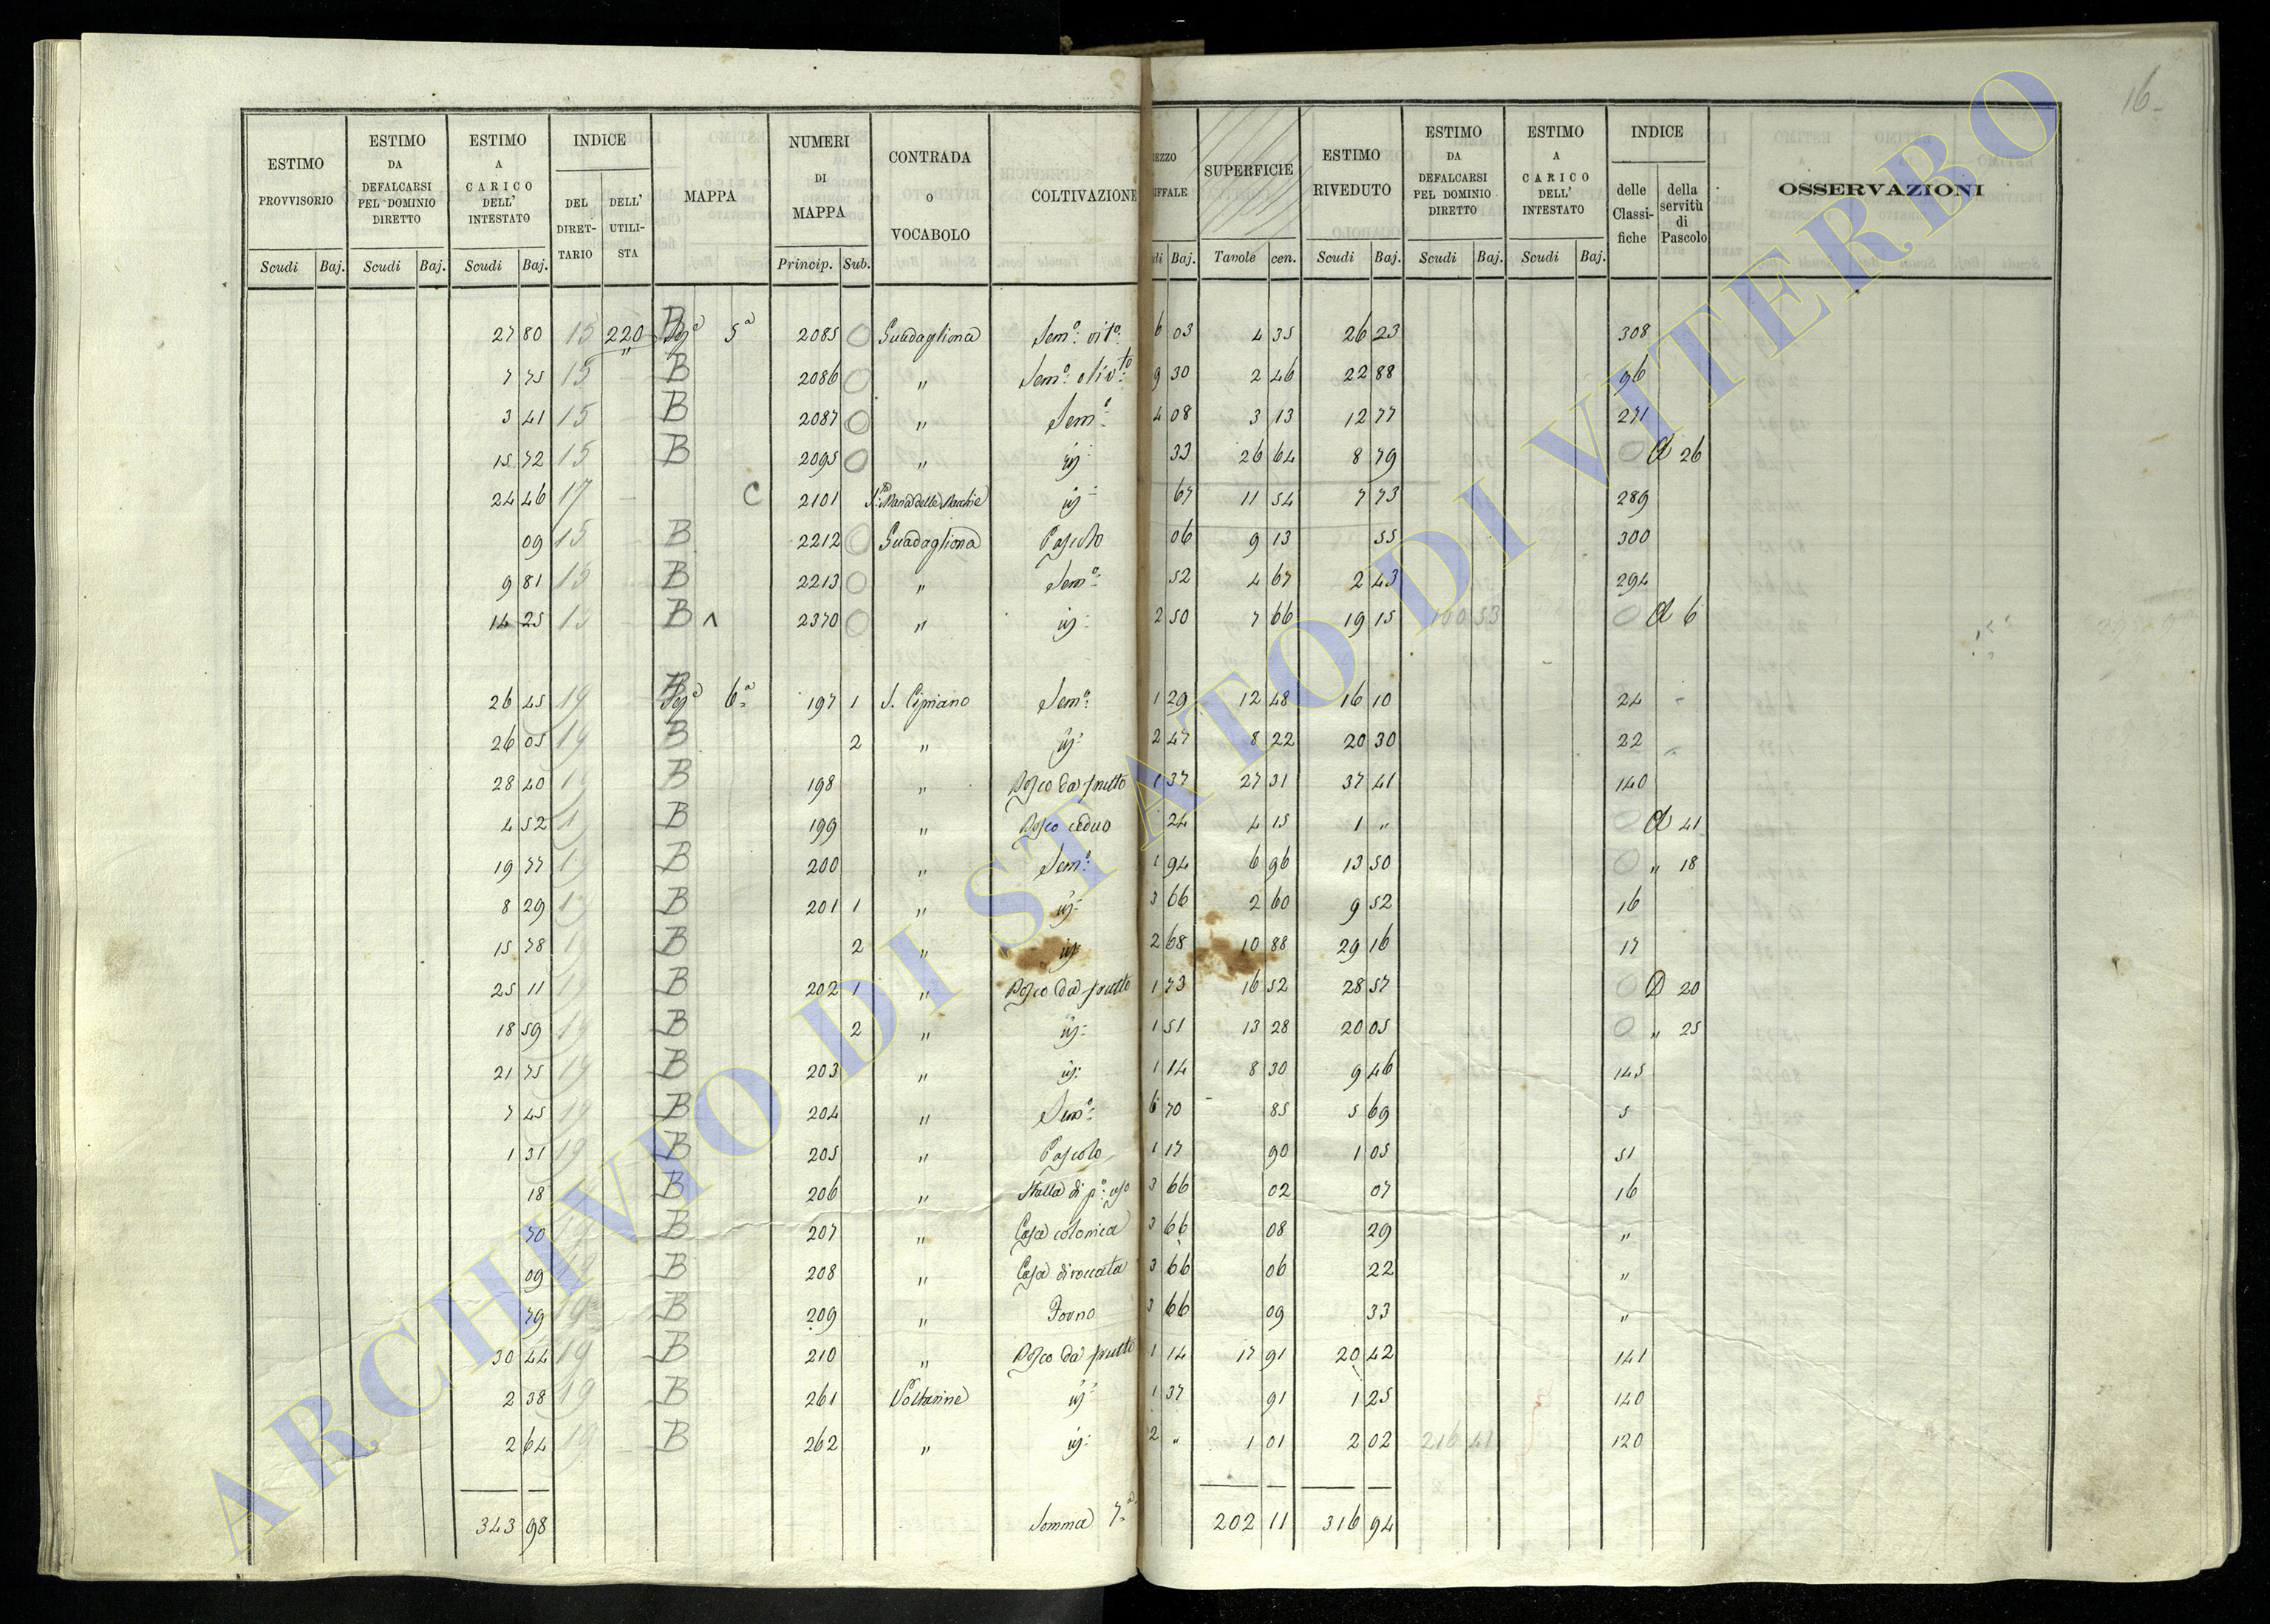 16
ESTIMO PROVVISORIO | ESTIMO DA DEFALCARSI PEL DOMINIO DIRETTO | ESTIMO A CARICO DELL' INTESTATO | INDICE | MAPPA | NUMERI DI MAPPA | CONTRADA o VOCABOLO | COLTIVAZIONE | SUPERFICIE | ESTIMO RIVEDUTO | ESTIMO DA DEFALCARSI PEL DOMINIO DIRETTO | ESTIMO A CARICO DELL' INTESTATO | INDICE | OSSERVAZIONI
DEL DIRETTARIO | DELL' UTILISTA | delle Classifiche | della servitù di Pascolo
Scudi | Baj. | Scudi | Baj. | Scudi | Baj. | Princip. | Sub. | Baj. | Tavole | cen. | Scudi | Baj. | Scudi | Baj. | Scudi | Baj.
27 80 | 15 | 220 | B 5ª | 2085 | Guadagliona | Sem.º vit.º | 6 03 | 4 35 | 26 23 | 308
7 75 | 15 | " | B | 2086 | " | Sem.º oliv.to | 9 30 | 2 46 | 22 88 | 96
3 41 | 15 | B | 2087 | " | Sem.º | 4 08 | 3 13 | 12 77 | 271
15 72 | 15 | B | 2095 | " | | 33 | 26 64 | 8 79 | 26
24 46 | 17 | C | 2101 | S. Maria delle Macchie | | 67 | 11 54 | 7 73 | 289
09 | 15 | B | 2212 | Guadagliona | Pascolo | 06 | 9 13 | 55 | 300
9 81 | 15 | B | 2213 | " | Sem.º | 52 | 4 67 | 2 43 | 294
14 25 | 15 | B ^ | 2370 | " | | 2 50 | 7 66 | 19 15 | 100 53 | 6
26 45 | 19 | B 6ª | 197 | 1 | S. Cipriano | Sem.º | 1 29 | 12 48 | 16 10 | 24
26 05 | 19 | B | 2 | " | | 2 47 | 8 22 | 20 30 | 22
28 40 | 19 | B | 198 | " | Bosco da frutto | 1 37 | 27 31 | 37 41 | 140
4 52 | 19 | B | 199 | " | Bosco ceduo | 24 | 4 15 | 1 " | 41
19 77 | 19 | B | 200 | " | Sem.º | 1 94 | 6 96 | 13 50 | " 18
8 29 | 19 | B | 201 | 1 | " | | 3 66 | 2 60 | 9 52 | 16
15 78 | 19 | B | 2 | " | | 2 68 | 10 88 | 29 16 | 17
25 11 | 19 | B | 202 | 1 | " | Bosco da frutto | 1 73 | 16 52 | 28 57 | D 20
18 59 | 19 | B | 2 | " | | 1 51 | 13 28 | 20 05 | " 25
21 75 | 19 | B | 203 | " | | 1 14 | 8 30 | 9 46 | 145
7 45 | 19 | B | 204 | " | Sem.º | 6 70 | 85 | 5 69 | 5
1 31 | 19 | B | 205 | " | Pascolo | 1 17 | 90 | 1 05 | 51
18 | 19 | B | 206 | " | Stalla di p.º uso | 3 66 | 02 | 07 | 16
70 | 19 | B | 207 | " | Casa colonica | 3 66 | 08 | 29 | "
09 | 19 | B | 208 | " | Casa diroccata | 3 66 | 06 | 22 | "
79 | 19 | B | 209 | " | Forno | 3 66 | 09 | 33 | "
30 44 | 19 | B | 210 | " | Bosco da frutto | 1 14 | 17 91 | 20 42 | 141
2 38 | 19 | B | 261 | | | 1 37 | 91 | 1 25 | 140
2 64 | 19 | B | 262 | " | | 2 " | 1 01 | 2 02 | 216 41 | 120
343 98 | Somma 7ª | 202 11 | 316 94
ARCHIVIO DI STATO DI VITERBO